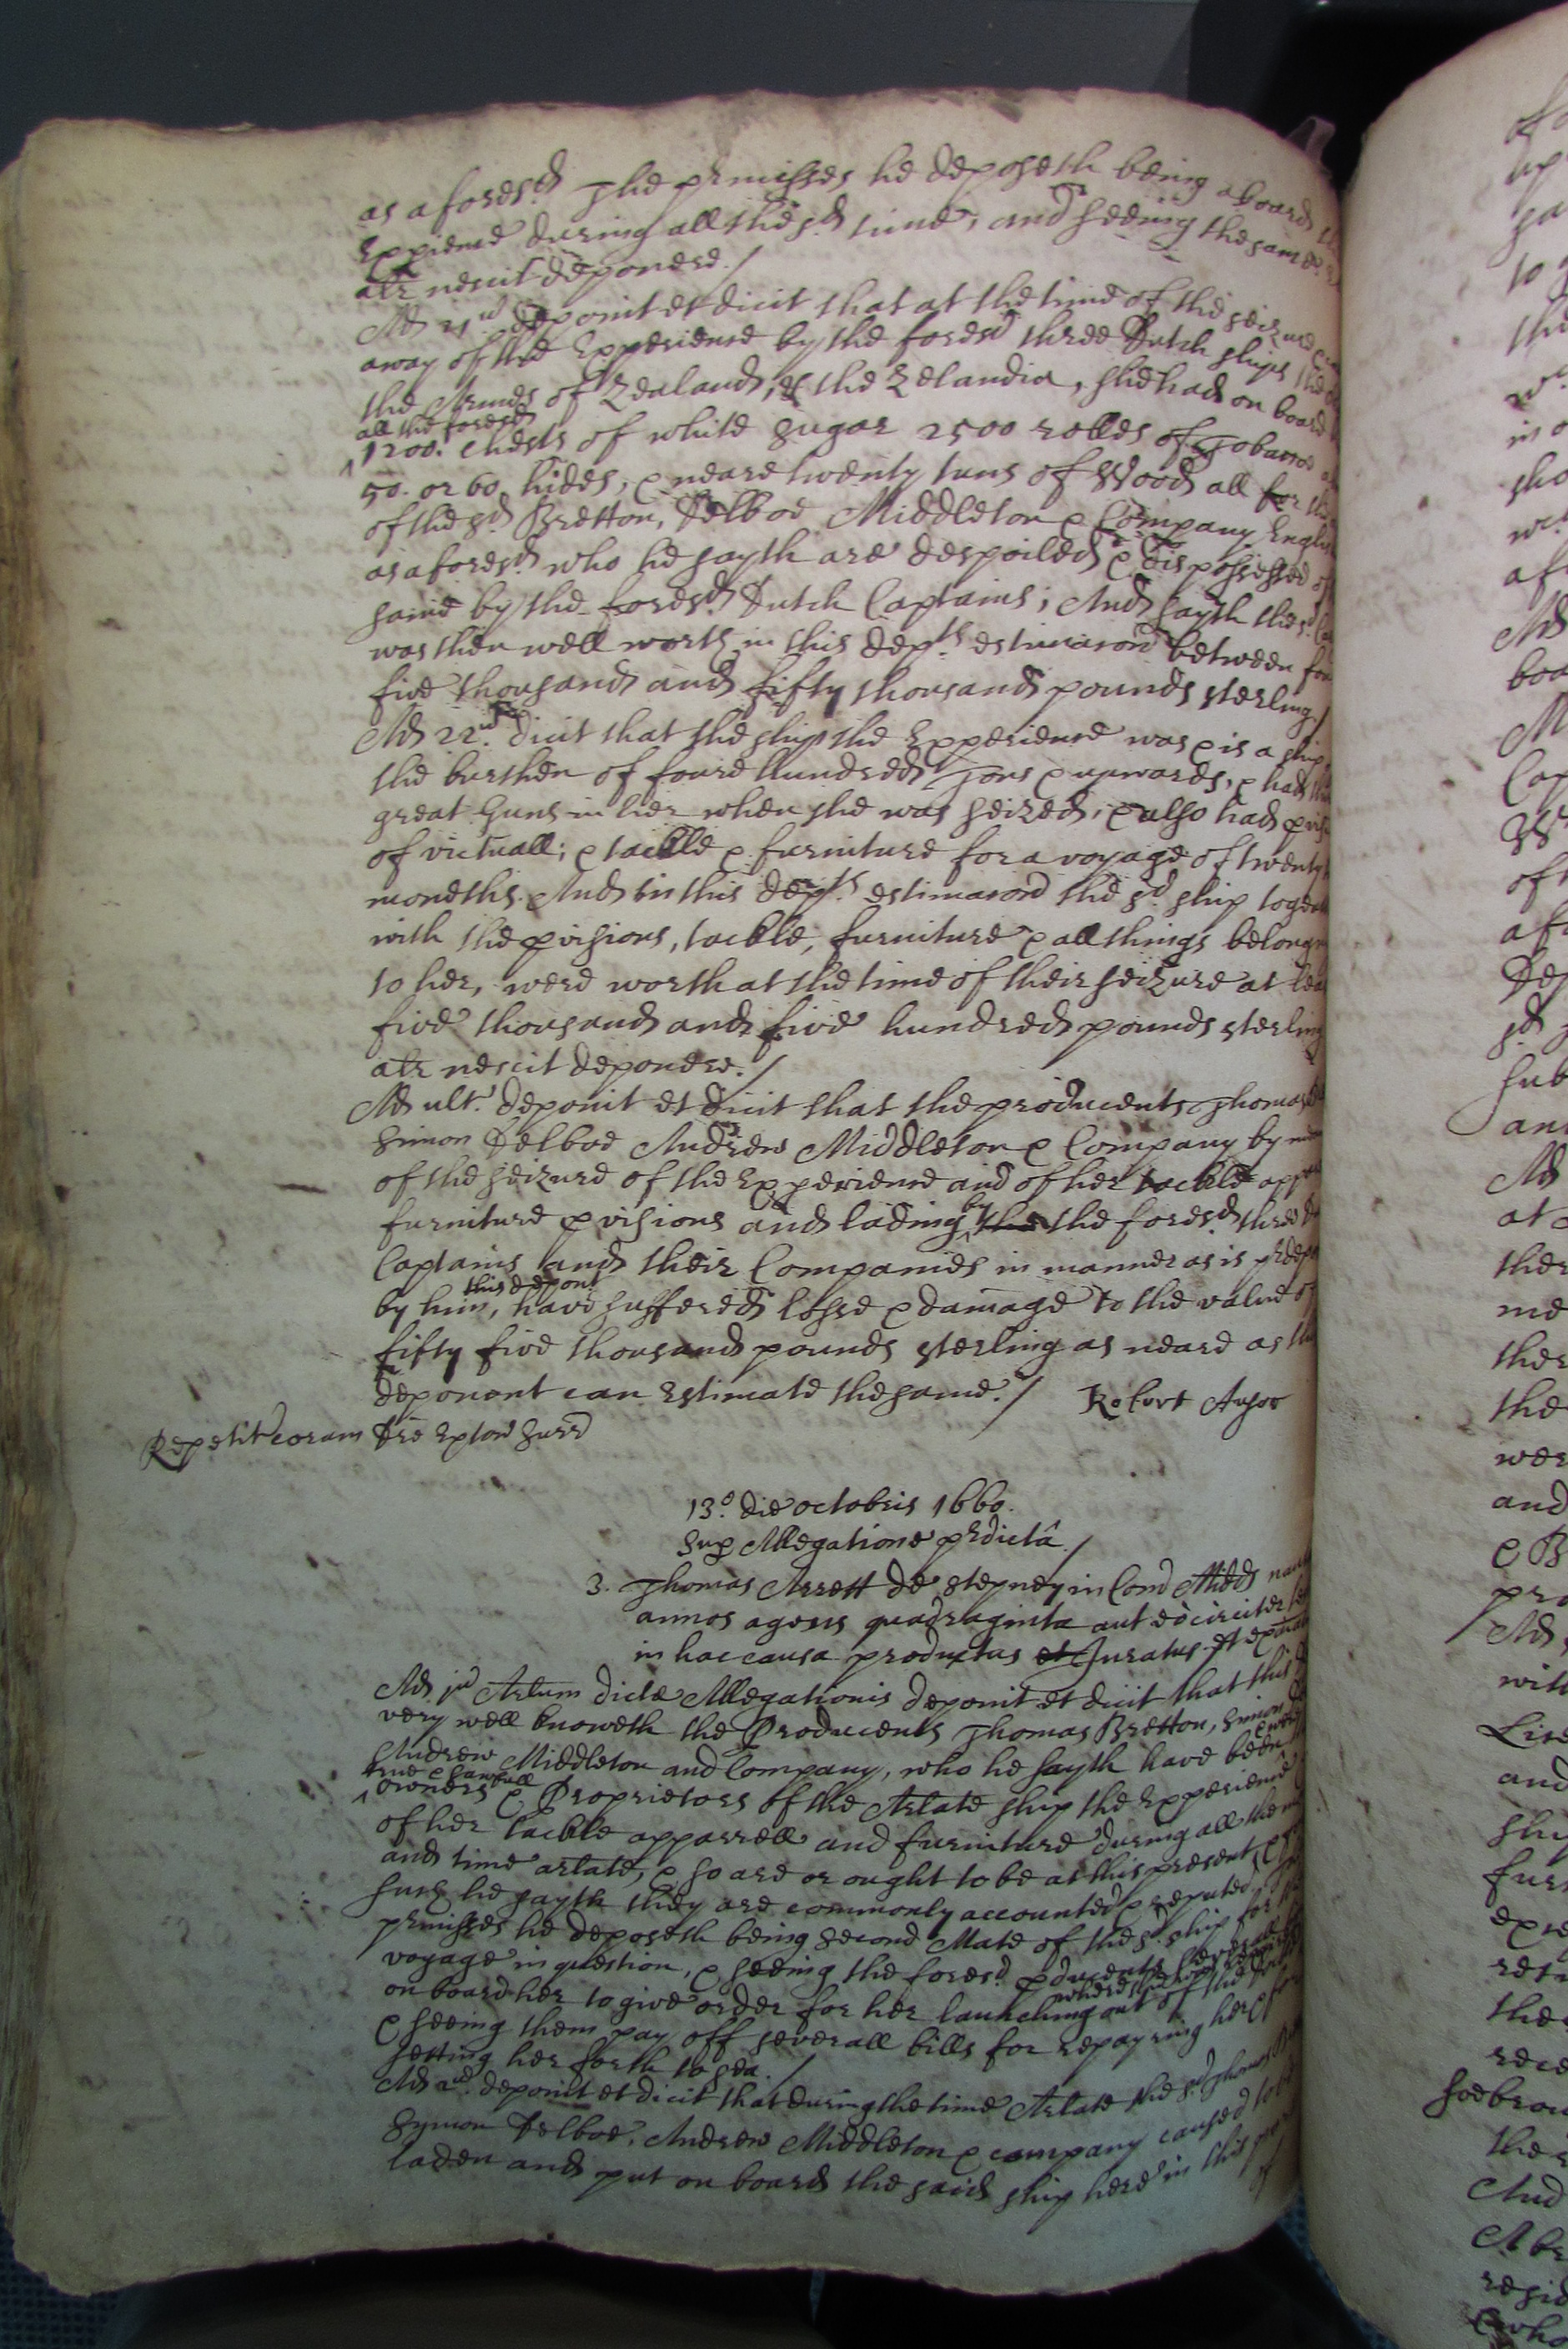 as aforesd. The prmisses he deposeth being aboard
Experience during all the sd. time, and seeing the same
altr nescit deponere./
Ad 21um deponit et dicit that at the time of the seizure
away of the Experience by the foresd three Dutch ships the
the Armes of Zealand, & the Zelandia, she had on board
all the foresd
1200. Chests of white sugar 2500 rolles of Tobaccoe
50. or 60. hides, & neare twenty tuns of Wood all for the
of the sd. Bretton, Delboe Middleton & Company English
as aforesd. who he sayth are despoiled & dispossessed of
same by the foresd. Dutch Captains; And sayth the sd.
was then well worth in this depts. estimacon between
five thousand and fifty thousand pounds sterling./
Ad 22um. dicit that the ship the Experience was & is a ship
the burthen of foure hundred Tons & upwards, & had
great Guns in her when she was seized, & also had
of victuall; & tackle & furniture for a voyage of twenty
moneths. And in this depts. estimacon the sd. ship
with the pvisions, tackle, furniture & all things
to her, were worth at the time of their seizure at
five thousand and five hundred pounds sterling
altr nescit deponere./
Ad ult. deponit et dicit that the producents Thomas
Simon Delboe Andrew Middleton & Company by
of the seizure of the Experience and of her tackle
furniture pvisions and lading by the the foresd. three
Captains and their Companies in manner as is
this depont
by him, have suffered losse & damage to the value of
fifty five thousand pounds sterling as neare as
deponent can Estimate the same./ Robert
Repetit coram Dre Exton Surr
13o. die octobris 1660.
Sup Allegatione prdictâ./
3. Thomas Arrett de Stepney in Com Midd
annos agens quadraginta aut eo circiter
in hac causa productus et Juratus et
Ad jum Arlum dictæ Allegationis deponit et dicit that this
very well knoweth the Producents Thomas Bretton, Simon
Andrew Middleton and Company, who he sayth have been
true & lawfull
owners & Proprietors of the Arlate ship the Experience
of her tackle apparrell and furniture during all the
and time arlate, & so are or ought to be at this present, &
such he sayth they are commonly accounted & reputed
prmisses he deposeth being second Mate of the sd. ship for the
voyage in question, & seeing the foresd. pducents severall
on board her to give order for her launching out of the
& seeing them pay off severall bills for repayring her &
setting her forth to sea./
Ad 2um. deponit et dicit that during the time Arlate the sd. Thomas
Symon Delboe, Andrew Middleton & company caused to be
laden and put on board the said ship here in this
of